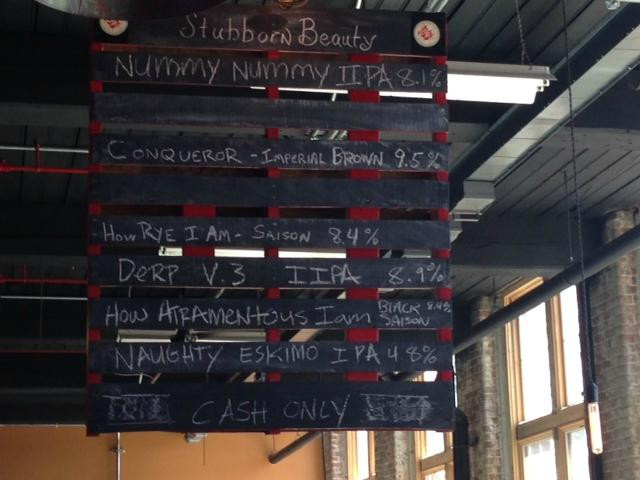 Stubborn Beauty
NUMMY NUMMY IIPA 8.1%
CONQUEROR - IMPERIAL BROWN 9.5%
How RYE I AM - SAISON 8.4%
DERP V.3 IIPA 8.9%
HOW ATRAMENTOUS I am BLACK SAISON 8.4%
NAUGHTY ESKIMO IPA 4.8%
CASH ONLY